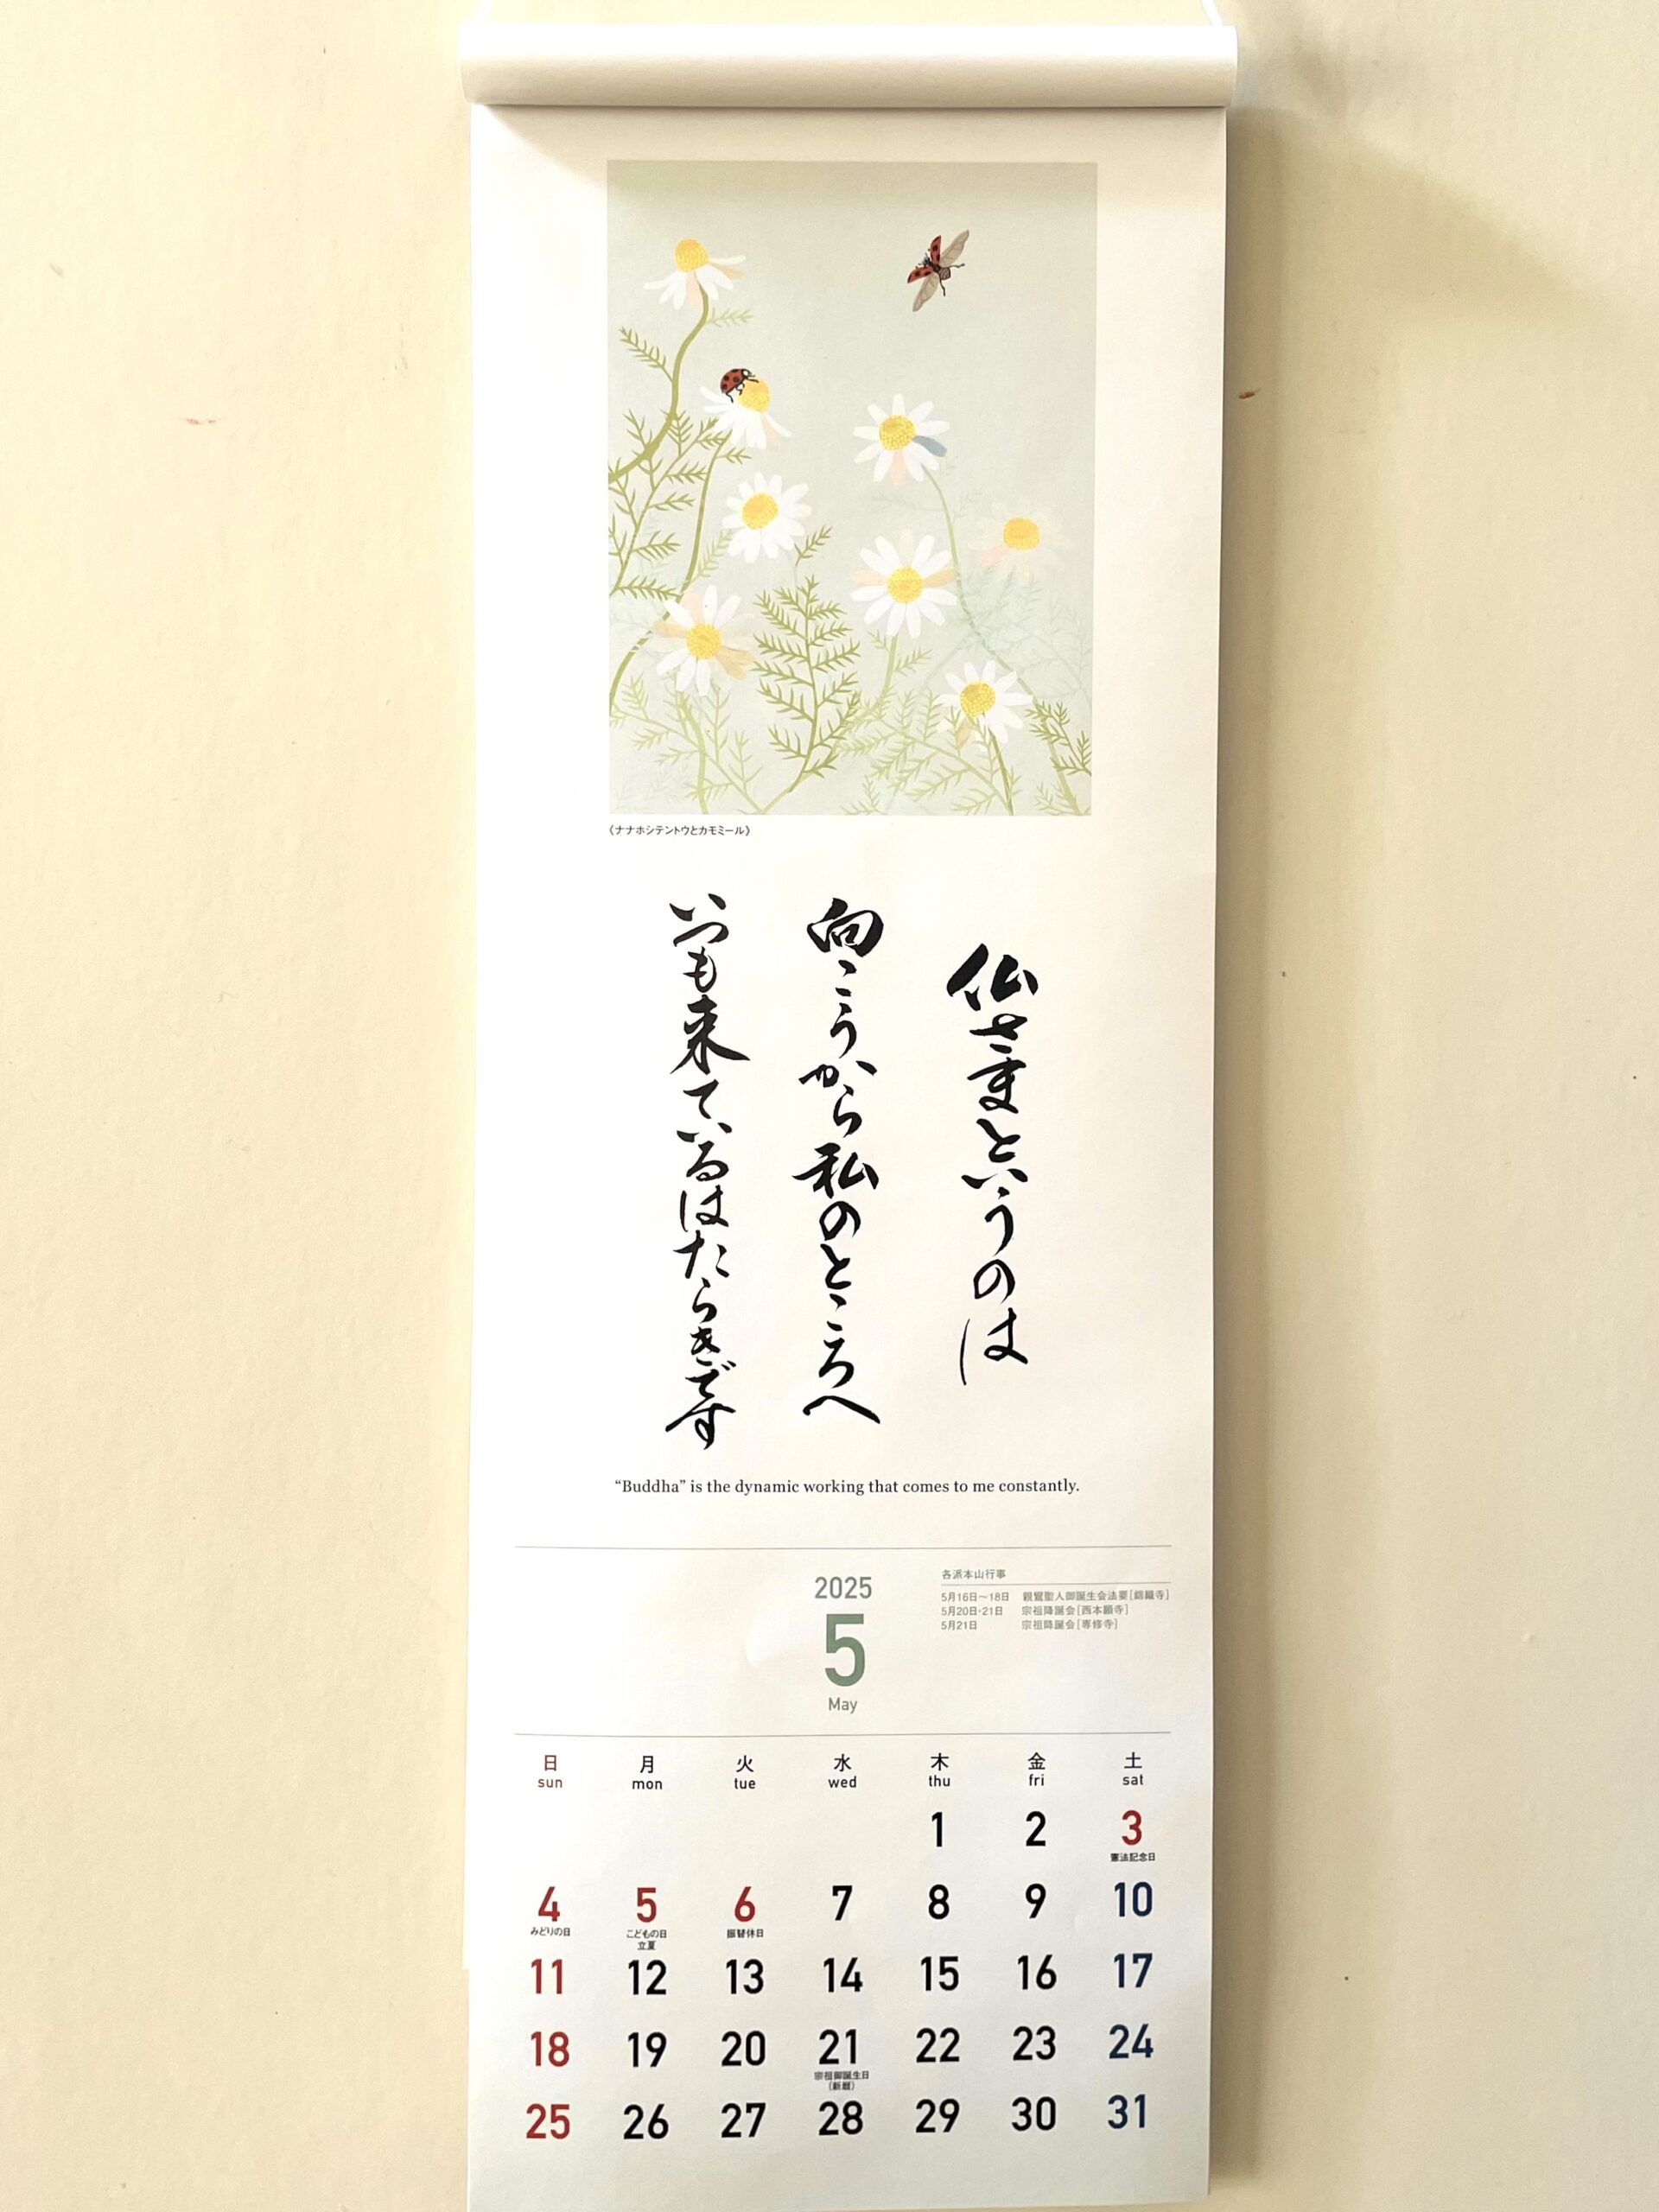 《ナナホシテントウとカモミール》
仏さまというのは
向こうから私のところへ
いつも来ているはたらきです
“Buddha” is the dynamic working that comes to me constantly.
2025
5
May
各派本山行事
5月16日～18日 親鸞聖人御誕生会法要[錦織寺]
5月20日・21日 宗祖降誕会[西本願寺]
5月21日 宗祖降誕会[専修寺]
日 月 火 水 木 金 土
sun mon tue wed thu fri sat
1 2 3
憲法記念日
4 5 6 7 8 9 10
みどりの日 こどもの日 振替休日
立夏
11 12 13 14 15 16 17
18 19 20 21 22 23 24
宗祖御誕生日
(新暦)
25 26 27 28 29 30 31